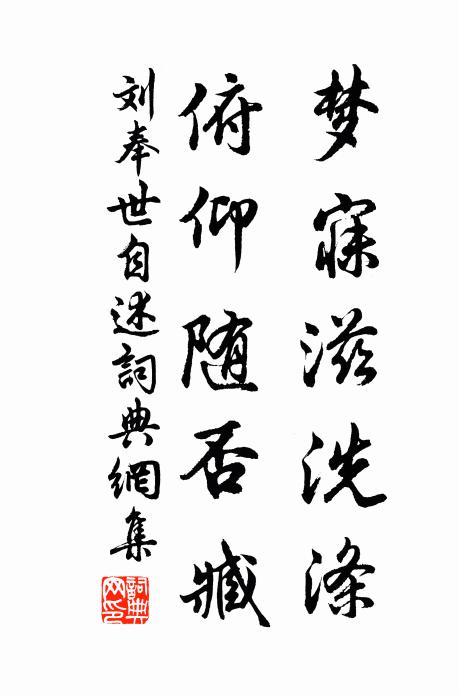 梦寐滋洗涤
俯仰随否臧
刘奉世自述詞典網集
詞典网印